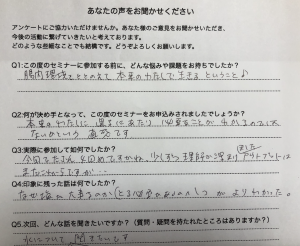 あなたの声をお聞かせください
アンケートにご協力いただけますか。あなた様のご意見をお聞かせいただき、
今後の活動に繋げていきたいと考えております。
どのような些細なことでも結構です。どうぞよろしくお願いします。
Q1:この度のセミナーに参加する前に、どんな悩みや課題をお持ちでしたか?
腸内環境をととのえて 本来のわたしで生きるということ♪
Q2:何が決め手となって、この度のセミナーをお申込みされましたでしょうか?
本来のわたしに 還るにあたり 必要なことが わかるのでは
ないかという 直感です
Q3:実際に参加して如何でしたか?
今回で 4回めですかね、少しずつ 理解が深まり アウトプットは
まだこれからですが…
Q4:印象に残った話は何でしたか?
なぜ塩が大事なのか
がよりわかった。
Q5.次回、どんな話を聞きたいですか?(質問・疑問を持たれたところはありますか?)
について 聞きたいです